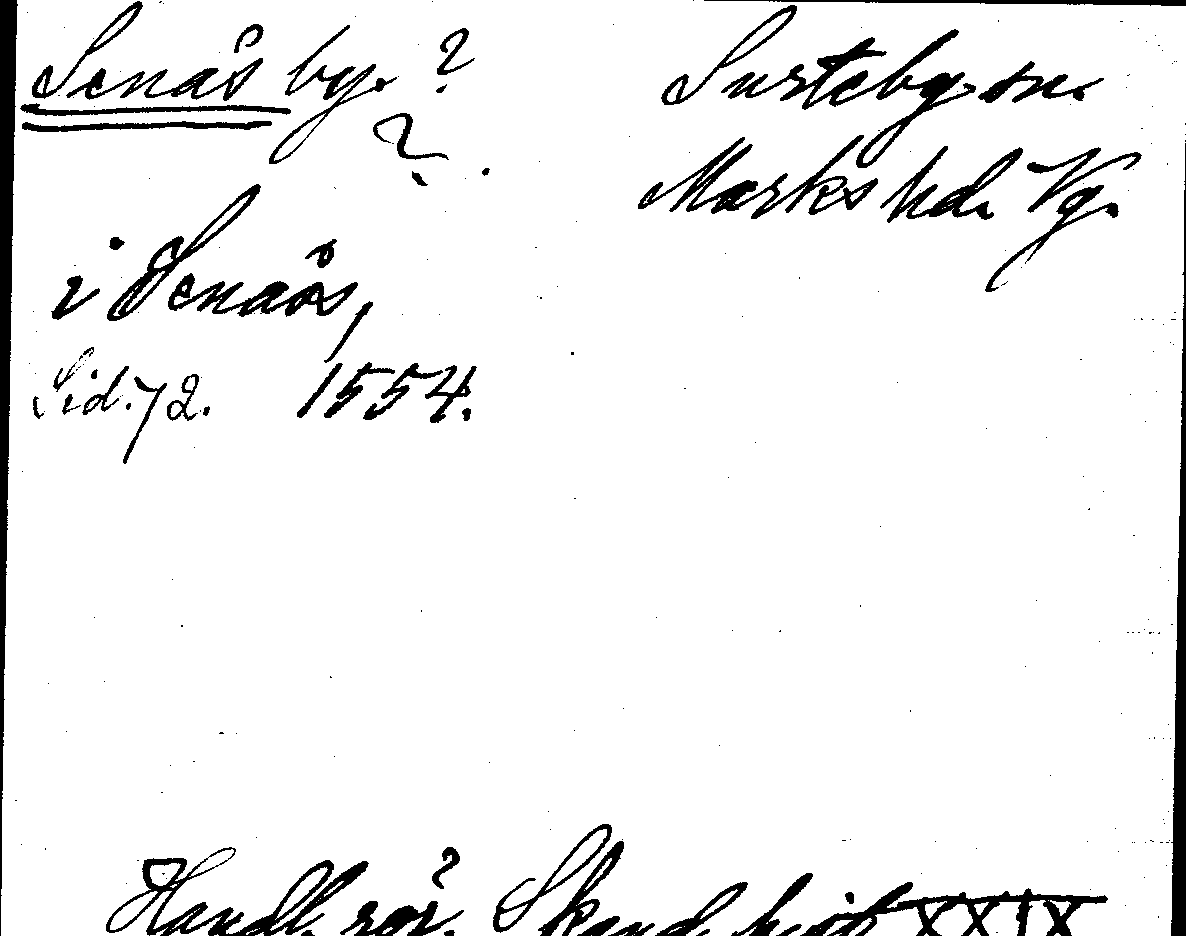 Senås by. ?
?
Surteby sn.
Marks hd. Vg.
i Senåös,
Sid. 72. 1554.
Handl. rör. Skand. hist XXIX